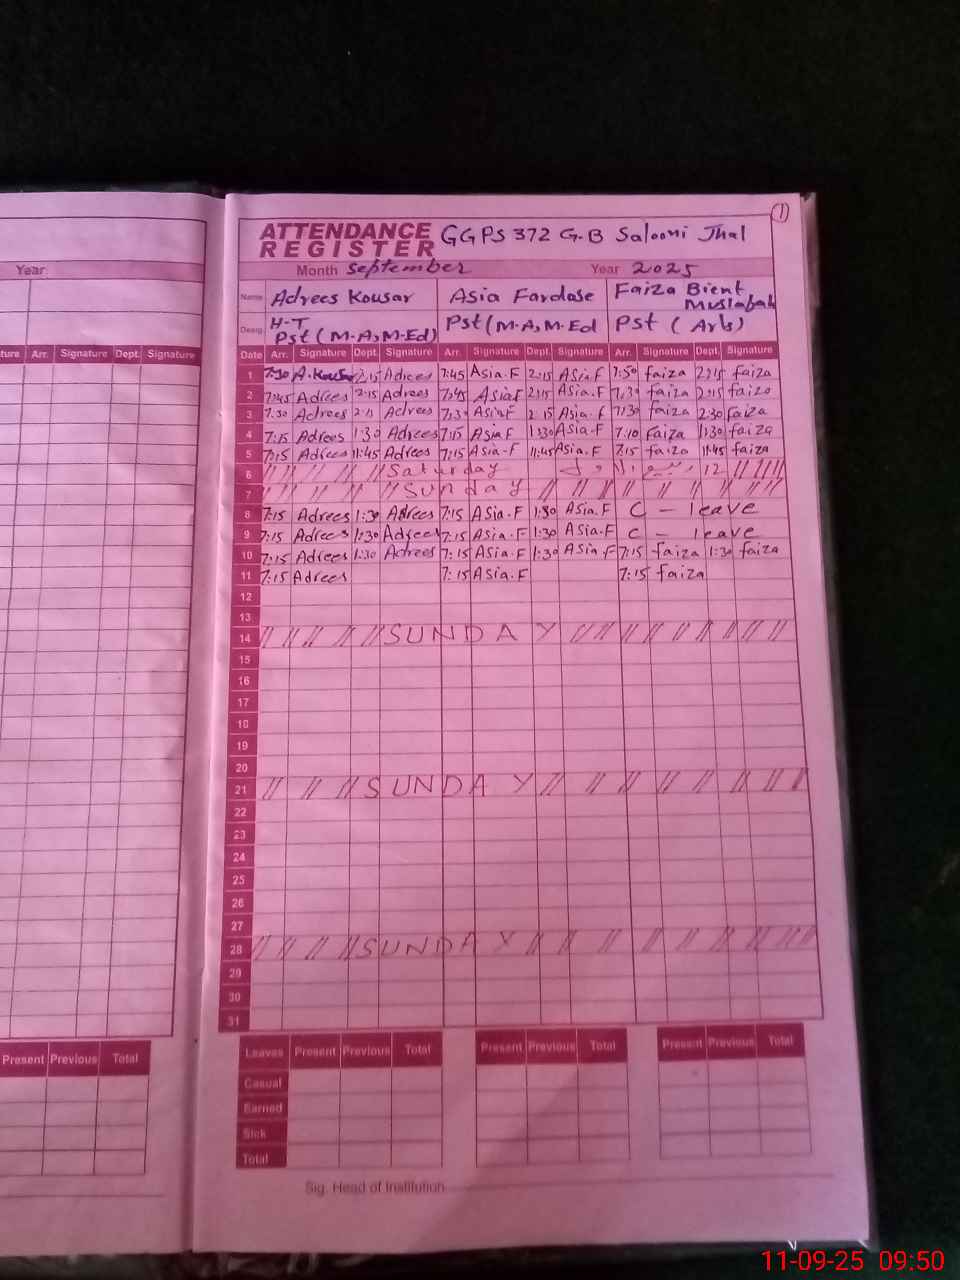 1
ATTENDANCE REGISTER GGPS 372 G.B Salooni Jhal
Year
Month September Year 2025
Name Adrees Kousar Asia Fardose Faiza Bient Mustabah
Desig. H-T Pst (M.A, M.Ed) Pst (M.A, M.Ed Pst ( Arb)
ture Arr. Signature Dept. Signature
Date Arr. Signature Dept. Signature Arr. Signature Dept. Signature Arr. Signature Dept. Signature
1 7:30 A.Kousar 2:15 Adrees 7:45 Asia.F 2:15 Asia.F 7:50 faiza 2:15 faiza
2 7:45 Adrees 2:15 Adrees 7:45 Asiaf 2:15 Asia.F 7:30 faiza 2:15 faiza
3 7:30 Adrees 2:15 Adrees 7:30 AsiaF 2:15 Asia.F 7:30 faiza 2:30 faiza
4 7:15 Adrees 1:30 Adrees 7:15 AsiaF 1:30 Asia.F 7:10 Faiza 1:30 faiza
5 7:15 Adrees 11:45 Adrees 7:15 Asia-F 11:45 Asia.F 7:15 faiza 11:45 faiza
6 Saturday 12
7 SUNDAY
8 7:15 Adrees 1:30 Adrees 7:15 Asia.F 1:30 Asia.F C - leave
9 7:15 Adrees 1:30 Adrees 7:15 Asia.F 1:30 Asia.F C - leave
10 7:15 Adrees 1:30 Adrees 7:15 Asia.F 1:30 Asia F 7:15 faiza 1:30 faiza
11 7:15 Adrees 7:15 Asia.F 7:15 faiza
12
13
14 SUNDAY
15
16
17
18
19
20
21 SUNDAY
22
23
24
25
26
27
28 SUNDAY
29
30
31
Present Previous Total
Leaves Present Previous Total Present Previous Total Present Previous Total
Casual
Earned
Sick
Total
Sig. Head of Institution
11-09-25 09:50